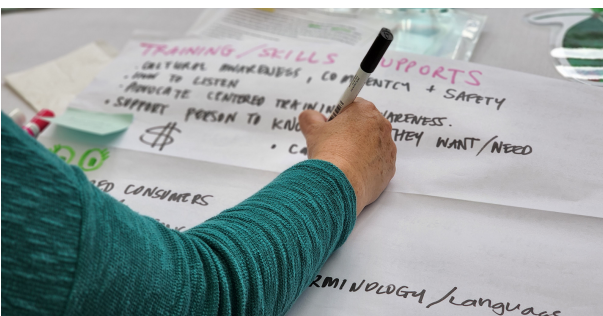 TRAINING/SKILLS SUPPORTS
• CULTURAL AWARENESS, COMPETENCY + SAFETY
• HOW TO LISTEN
• ADVOCATE CENTERED TRAINING AWARENESS.
• SUPPORT PERSON TO KNOW THEY WANT/NEED
$
• CA
CONSUMERS
RMINOLOGY/Language